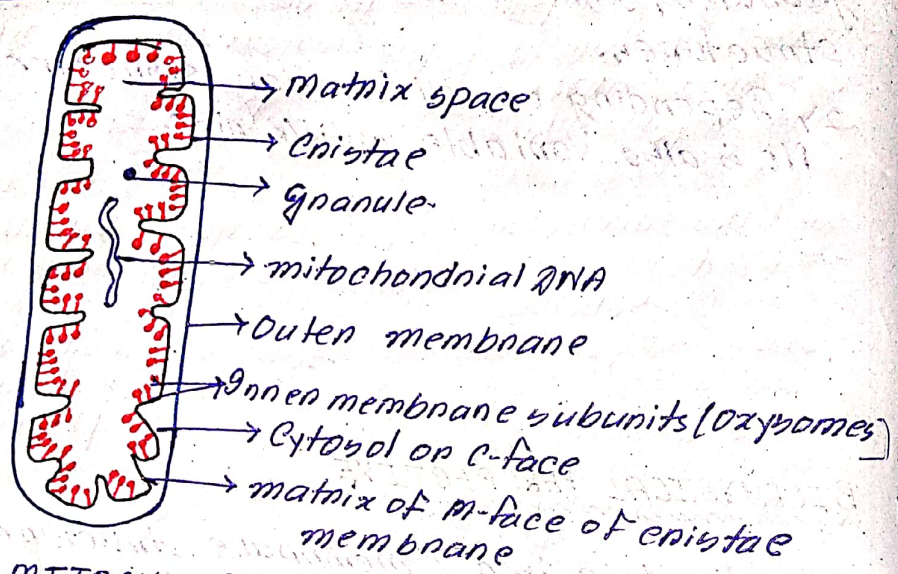 matrix space
Cristae
granule.
mitochondrial DNA
Outer membrane
Inner membrane subunits (oxysomes)
Cytosol or C-face
matrix of M-face of cristae
membrane